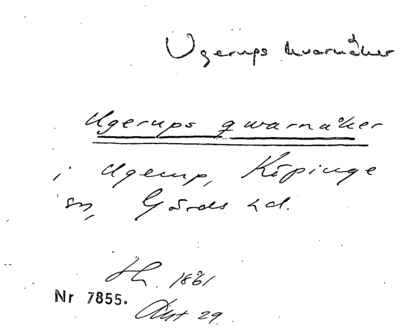 Ugerups kvarnåker
Ugerups qwarnåker
i Ugerup, Köpinge
sn, Gärds hd.
Lh. 1861
Nr 7855.
Akt 29